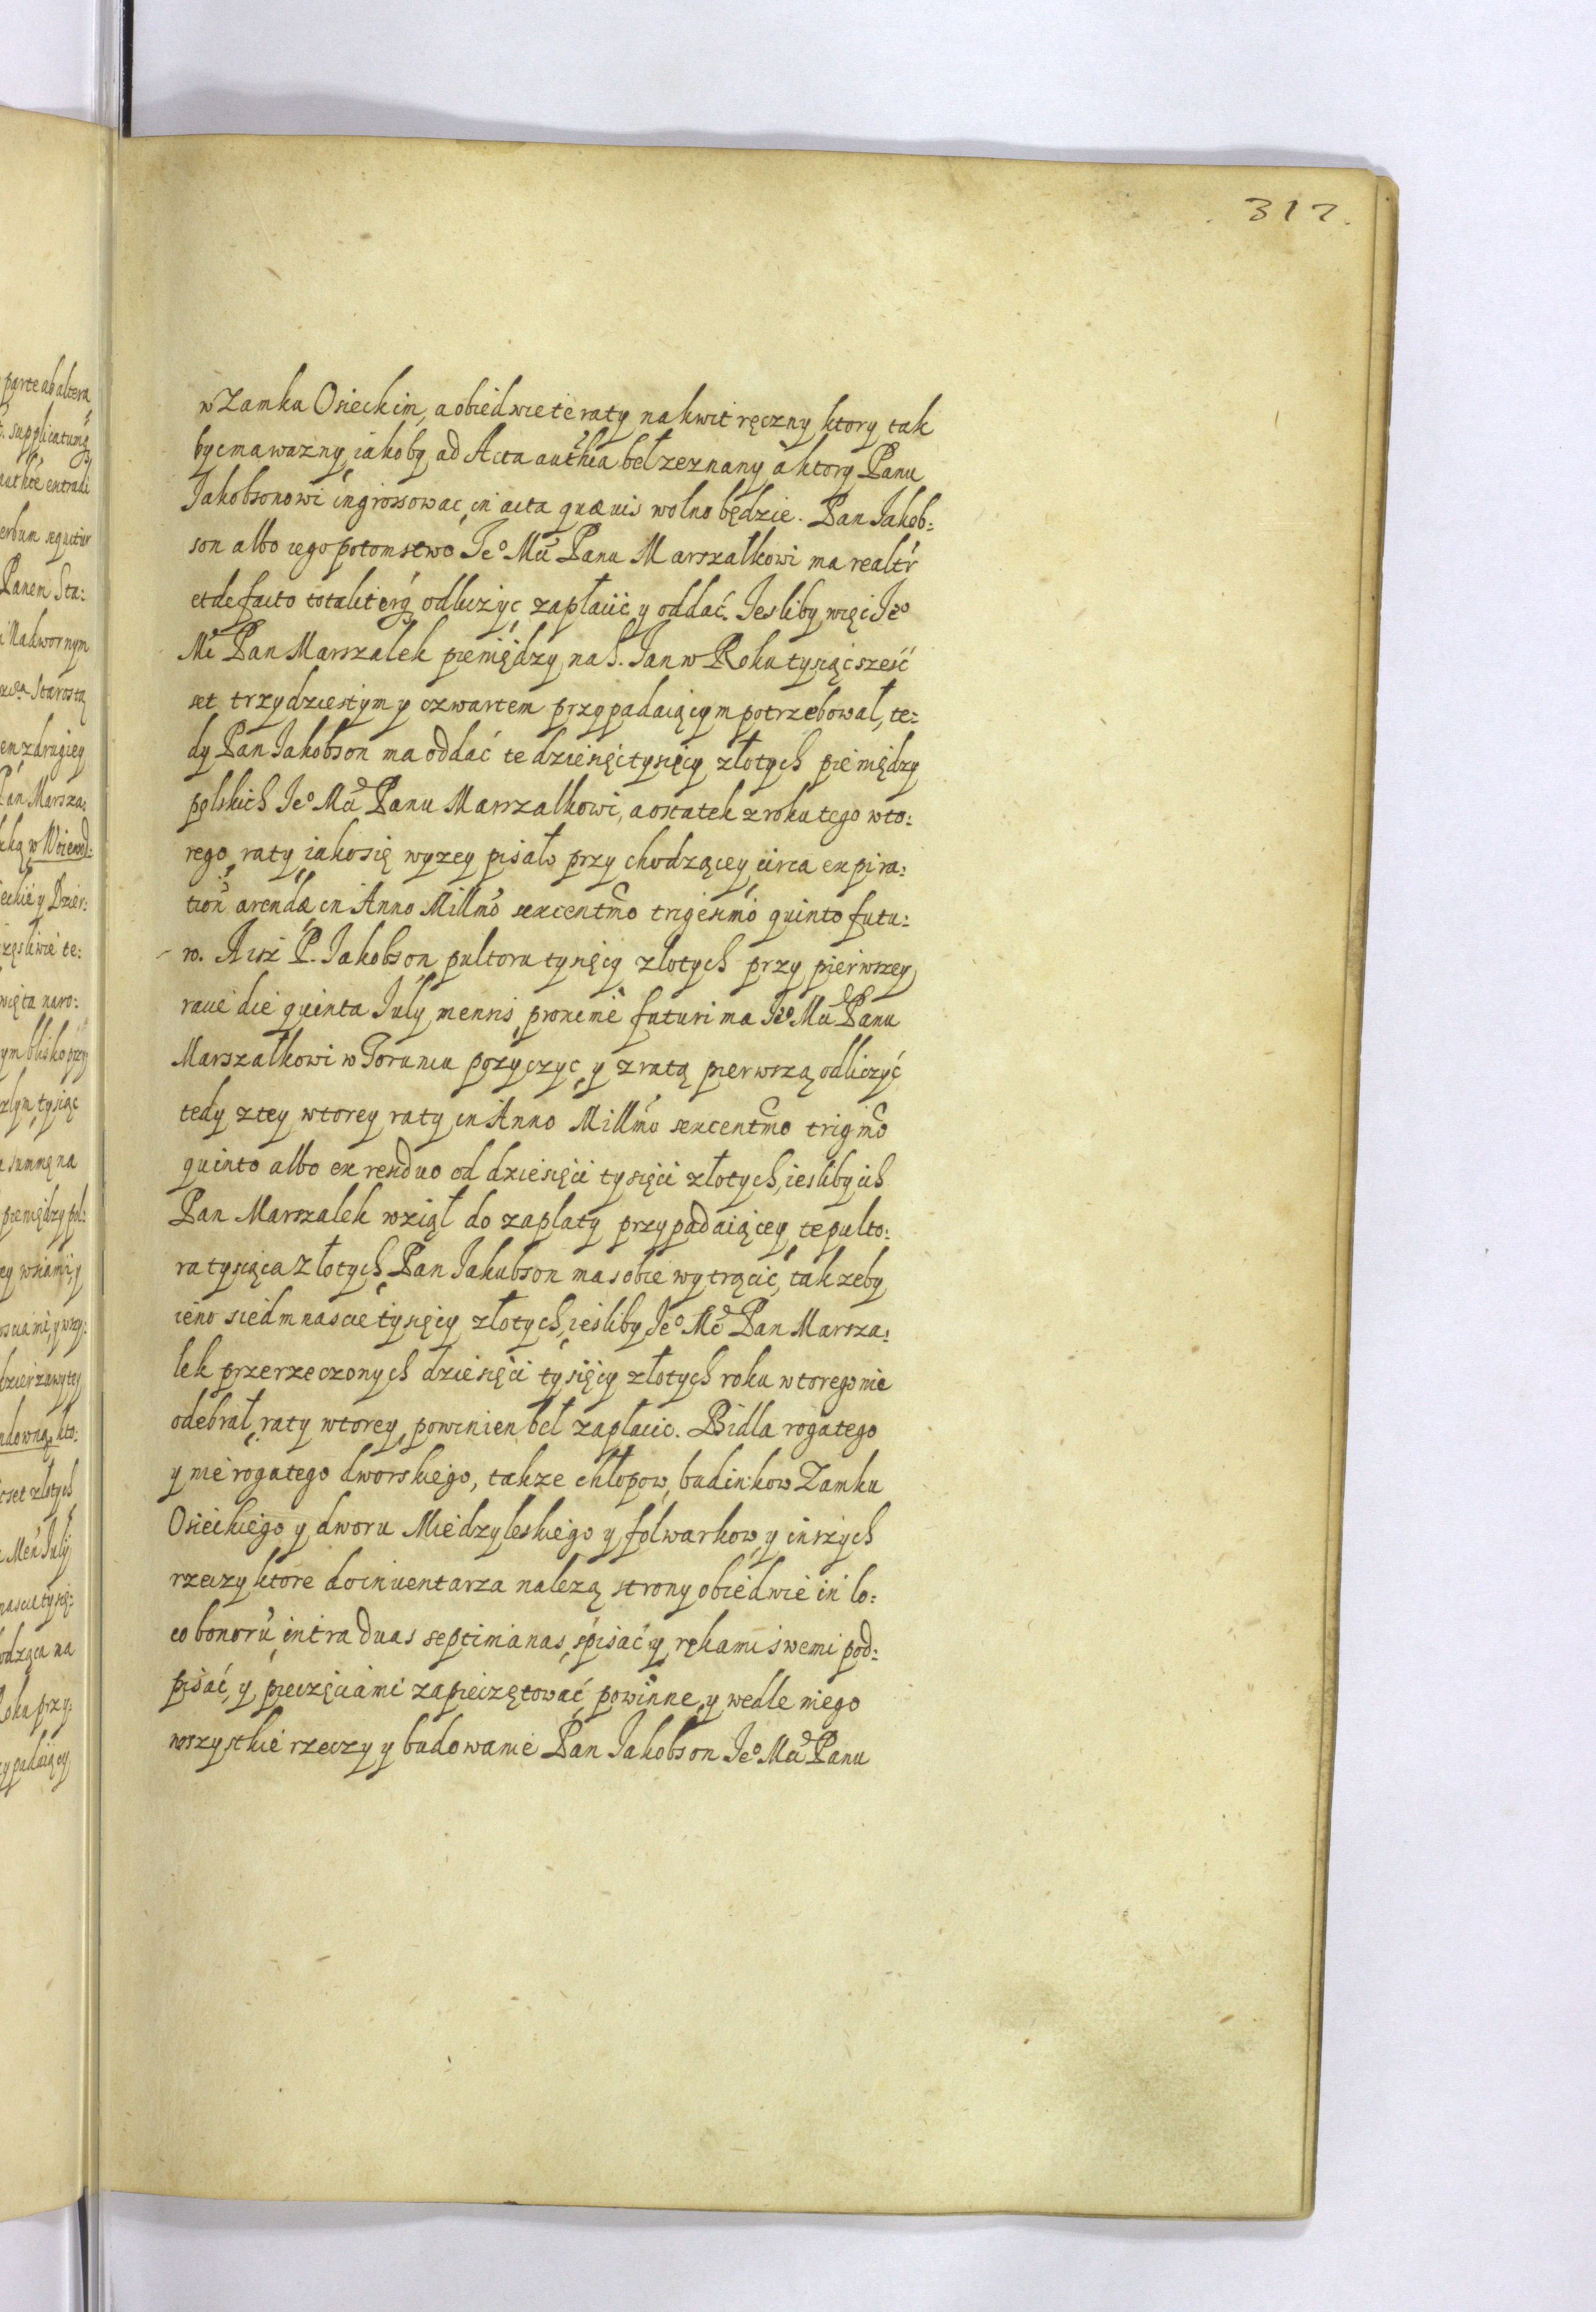 317.
w Zamku Osieckim, a obiedwie te raty na kwit ręczny, ktory tak
byc ma wazny, iakoby ad Acta auth̃ca beł zeznany, a ktory Panu
Jakobsonowi ingrossowac in acta quæuis wolno będzie. Pan Jakob:
son albo iego potomstwo Jeo Mći Panu Marszałkowi ma realtr̃
et de facto totaliterq́ odliczyc zapłacic y oddać. Jesliby więc Jeo
Mć Pan Marszałek pieniędzy na S. Jan w Roku tysiąc sześć
set trzydziestym y czwartem przypadaiącym potrzebował, te:
dy Pan Jakobson ma oddać te dziesięć tysięcy złotych pieniędzy
polskich Jeo Mći Panu Marszałkowi, a ostatek z roku tego wto:
rego raty, iako się wyzey pisało przy chodzącey circa expira:
tion̄ arendæ in Anno Millmo sexcentmo trigesimo quinto futu:
ro. Acz P. Jakobson pultora tysięcy złotych przy pierwszey
racie die quinta July mensis proxime futuri ma Jeo Mći Panu
Marszałkowi w Toruniu pozyczyc, y z ratą pierwszą odliczyć
tedy z tey wtorey raty in Anno Millmo sexcentmo trigmo
quinto albo ex residuo od dziesięci tysięci złotych, iesliby ich
Pan Marszałek wziął do zapłaty przypadaiącey, te pulto:
ra tysiąca złotych Pan Jakubson ma sobie wytrącić, tak zeby
ieno siedmnascie tysięcy złotych, iesliby Jeo Mć Pan Marsza:
lek przerzeczonych dziesięci tysięcy złotych roku wtorego nie
odebrał, raty wtorey, powinien beł zapłacic. Bidla rogatego
y nie rogatego dworskiego, takze chłopow, budinkow Zamku
Osieckiego y dworu Miedzyleskiego y folwarkow, y inszych
rzeczy ktore do inuentarza nalezą strony obiedwie in lo:
co bonorũ intra duas septimanas, spisać y rękami swemi pod:
pisać, y pieczęciami zapieczętować powinne, y wedle niego
wszystkie rzeczy y budowanie Pan Jakobson Jeo Mći Panu